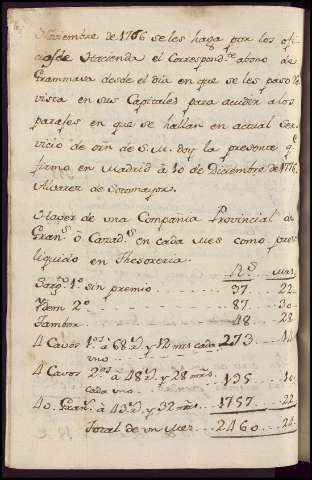 Noviembre de 1776 se les haga por los ofi
ciales de Hacienda el Correspond.te abono de
Grammasa desde el dia en que se les pasó Re
vista en sus Capitales para acudir a los
parajes en que se hallan en actual Ser
vicio de orn de S.M. doy la presente q.e
firmo en Madrid à 10 de Diciembre de 1776.
Alvarez de Sotomayor.
Haver de una Compania Provincial de
Gran.s ò Cazad.s en cada mes como prest
liquido en Thesoreria.
R.s mrs.
Sarg.to 1.o sin premio 97. 22
Ydem 2.o 87. 30
Tambor 48 28
4 Cavos 1.os à 68 r.s y 12 mrs cada 273. 14
uno
4 Cavos 2.os à 48 r.s y 28 mrs 195. 10
cada uno
40. Gran.s à 43 r.s y 32 mrs 1757. 22
Total de un mes 2460. 24